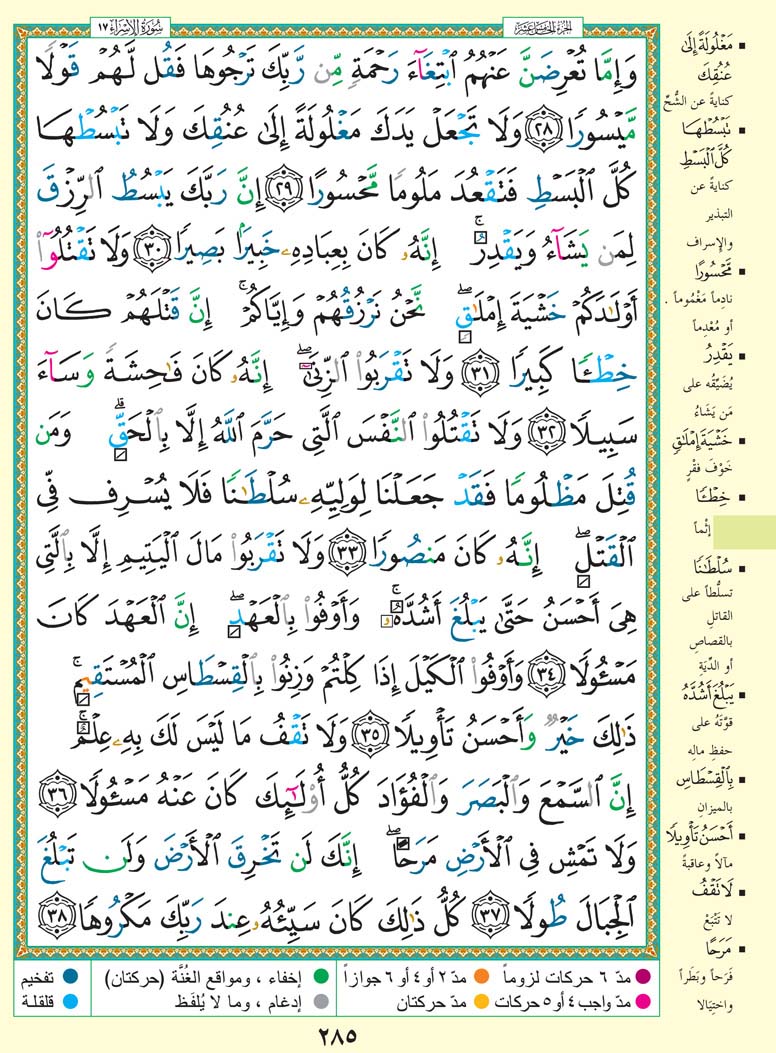 سُورَةُ الإِسْرَاءِ ١٧
الجُزْءُ الخَامِسَ عَشَرَ
وَإِمَّا تُعْرِضَنَّ عَنْهُمُ ٱبْتِغَآءَ رَحْمَةٍ مِّن رَّبِّكَ تَرْجُوهَا فَقُل لَّهُمْ قَوْلًا
مَّيْسُورًا ۝٢٨ وَلَا تَجْعَلْ يَدَكَ مَغْلُولَةً إِلَىٰ عُنُقِكَ وَلَا تَبْسُطْهَا
كُلَّ ٱلْبَسْطِ فَتَقْعُدَ مَلُومًا مَّحْسُورًا ۝٢٩ إِنَّ رَبَّكَ يَبْسُطُ ٱلرِّزْقَ
لِمَن يَشَآءُ وَيَقْدِرُ ۚ إِنَّهُۥ كَانَ بِعِبَادِهِۦ خَبِيرًۢا بَصِيرًا ۝٣٠ وَلَا تَقْتُلُوٓا۟
أَوْلَٰدَكُمْ خَشْيَةَ إِمْلَٰقٍ ۖ نَّحْنُ نَرْزُقُهُمْ وَإِيَّاكُمْ ۚ إِنَّ قَتْلَهُمْ كَانَ
خِطْـًٔا كَبِيرًا ۝٣١ وَلَا تَقْرَبُوا۟ ٱلزِّنَىٰٓ ۖ إِنَّهُۥ كَانَ فَٰحِشَةً وَسَآءَ
سَبِيلًا ۝٣٢ وَلَا تَقْتُلُوا۟ ٱلنَّفْسَ ٱلَّتِى حَرَّمَ ٱللَّهُ إِلَّا بِٱلْحَقِّ ۗ وَمَن
قُتِلَ مَظْلُومًا فَقَدْ جَعَلْنَا لِوَلِيِّهِۦ سُلْطَٰنًا فَلَا يُسْرِف فِّى
ٱلْقَتْلِ ۖ إِنَّهُۥ كَانَ مَنصُورًا ۝٣٣ وَلَا تَقْرَبُوا۟ مَالَ ٱلْيَتِيمِ إِلَّا بِٱلَّتِى
هِىَ أَحْسَنُ حَتَّىٰ يَبْلُغَ أَشُدَّهُۥ ۚ وَأَوْفُوا۟ بِٱلْعَهْدِ ۖ إِنَّ ٱلْعَهْدَ كَانَ
مَسْـُٔولًا ۝٣٤ وَأَوْفُوا۟ ٱلْكَيْلَ إِذَا كِلْتُمْ وَزِنُوا۟ بِٱلْقِسْطَاسِ ٱلْمُسْتَقِيمِ ۚ
ذَٰلِكَ خَيْرٌ وَأَحْسَنُ تَأْوِيلًا ۝٣٥ وَلَا تَقْفُ مَا لَيْسَ لَكَ بِهِۦ عِلْمٌ ۚ
إِنَّ ٱلسَّمْعَ وَٱلْبَصَرَ وَٱلْفُؤَادَ كُلُّ أُو۟لَٰٓئِكَ كَانَ عَنْهُ مَسْـُٔولًا ۝٣٦
وَلَا تَمْشِ فِى ٱلْأَرْضِ مَرَحًا ۖ إِنَّكَ لَن تَخْرِقَ ٱلْأَرْضَ وَلَن تَبْلُغَ
ٱلْجِبَالَ طُولًا ۝٣٧ كُلُّ ذَٰلِكَ كَانَ سَيِّئُهُۥ عِندَ رَبِّكَ مَكْرُوهًا ۝٣٨
▪ مَغْلُولَةً إِلَىٰ
عُنُقِكَ
كنايةً عن الشُّحِّ
▪ تَبْسُطْهَا
كُلَّ ٱلْبَسْطِ
كنايةً عن
التبذير
والإسراف
▪ مَّحْسُورًا
نادِماً مَغْمُوماً .
أو مُعْدِماً
▪ يَقْدِرُ
يُضَيِّقُه على
مَن يَشَاءُ
▪ خَشْيَةَ إِمْلَٰقٍ
خَوْفَ فقْرٍ
▪ خِطْـًٔا
إثْماً
▪ سُلْطَٰنًا
تسلُّطاً على
القاتلِ
بالقصاصِ
أو الدِّيَةِ
▪ يَبْلُغَ أَشُدَّهُ
قوَّتَهُ على
حفظِ مالِه
▪ بِٱلْقِسْطَاسِ
بالميزانِ
▪ أَحْسَنُ تَأْوِيلًا
مآلاً وعاقبةً
▪ لَا تَقْفُ
لا تتْبَعْ
▪ مَرَحًا
فَرَحاً وبَطَراً
واختِيالا
مدّ ٦ حركات لزوماً
مدّ ٢ أو ٤ أو ٦ جوازاً
إخفاء ، ومواقع الغُنَّة (حركتان)
تفخيم
مدّ واجب ٤ أو ٥ حركات
مدّ حركتان
إدغام ، وما لا يُلفَظ
قلقلة
٢٨٥